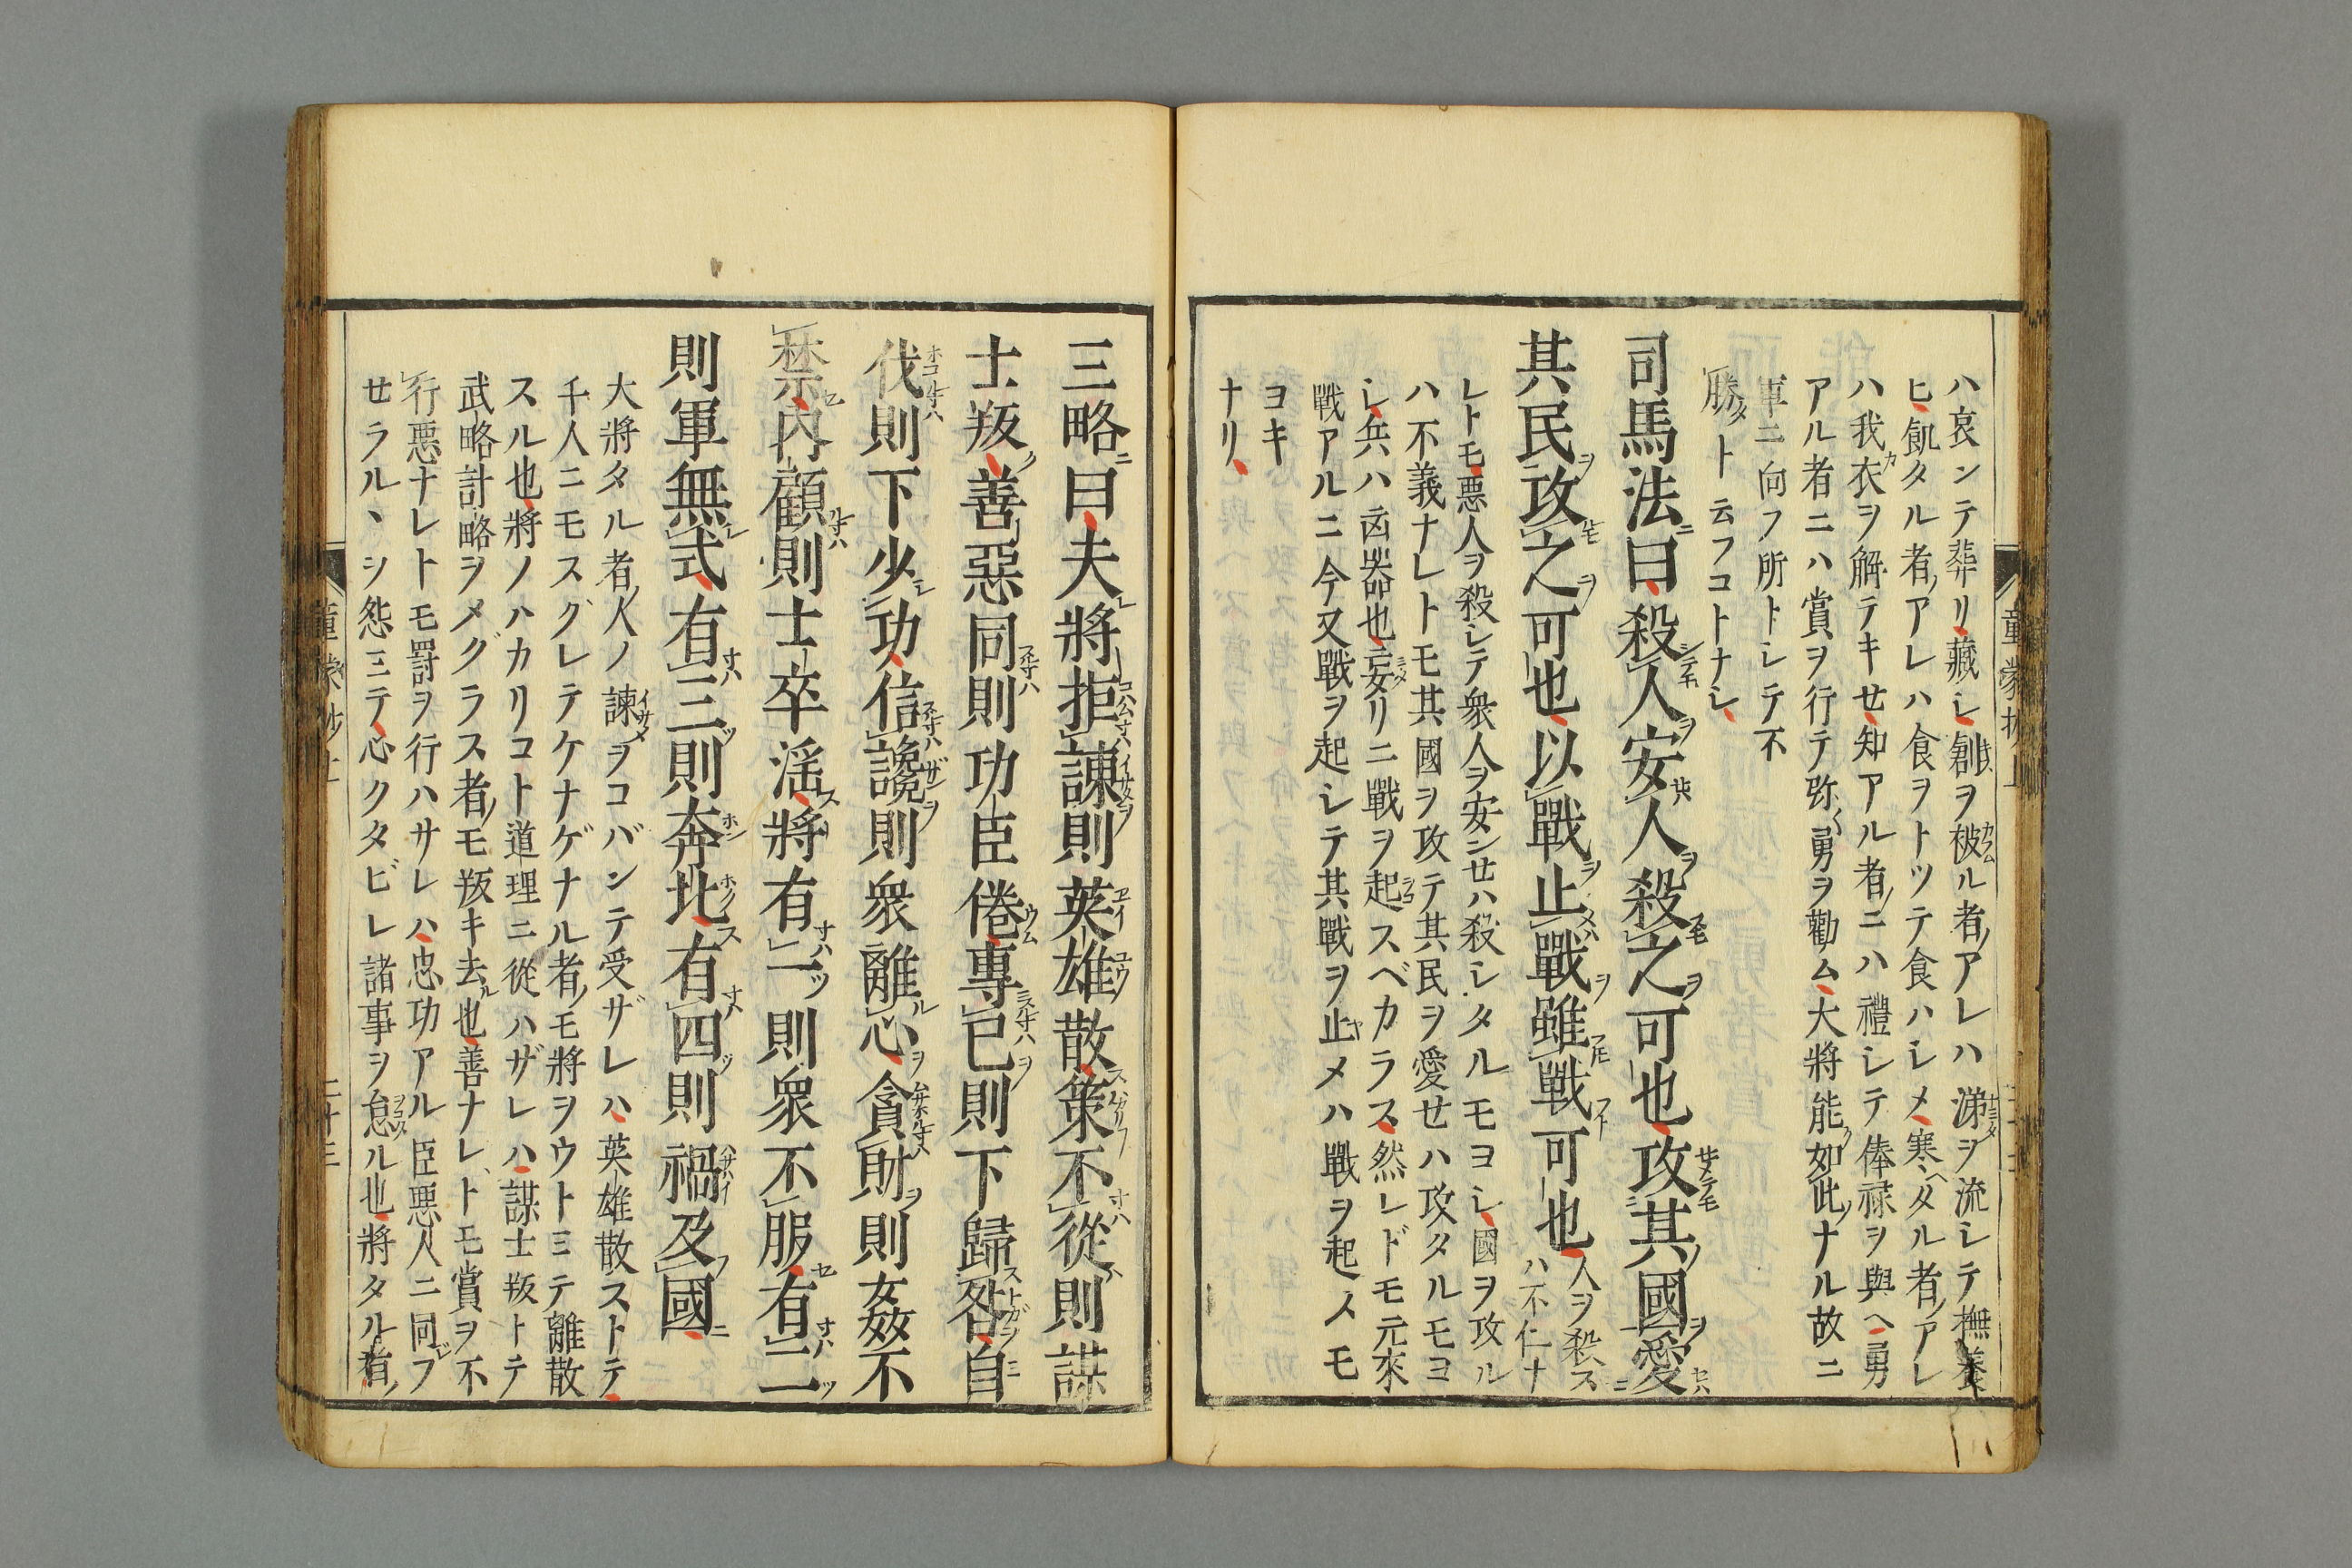 ハ哀ンテ葬リ藏シ創ヲ被ル者アレハ涕ヲ流シテ撫養
ヒ飢タル者アレハ食ヲトツテ食ハシメ寒ヘタル者アレ
ハ我衣ヲ解テキセ知アル者ニハ禮シテ俸禄ヲ與ヘ勇
アル者ニハ賞ヲ行テ弥勇ヲ勸ム大將能如此ナル故ニ
軍ニ向フ所トシテ不
勝ト云フコトナシ
司馬法曰殺人安人殺之可也攻其國愛
其民攻之可也以戰止戰雖戰可也
人ヲ殺ス
ハ不仁ナ
レトモ悪人ヲ殺シテ衆人ヲ安ンセハ殺シタルモヨシ國ヲ攻ル
ハ不義ナレトモ其國ヲ攻テ其民ヲ愛セハ攻タルモヨ
シ兵ハ凶器也妄リニ戰ヲ起スベカラス然レドモ元來
戰アルニ今又戰ヲ起シテ其戰ヲ止メハ戰ヲ起メモ
ヨキ
ナリ
童蒙抄上
三略曰夫將拒諫則英雄散策不從則謀
士叛善惡同則功臣倦專己則下歸咎自
伐則下少功信讒則衆離心貪財則姦不
禁內顧則士卒淫將有一則衆不服有二
則軍無式有三則奔北有四則禍及國
大將タル者人ノ諫ヲコバンテ受ザレハ英雄散ストテ
千人ニモスグレテケナゲナル者モ將ヲウトミテ離散
スル也將ノハカリコト道理ニ從ハザレハ謀士叛トテ
武略計略ヲメグラス者モ叛キ去ル也善ナレトモ賞ヲ不
行悪ナレトモ罸ヲ行ハサレハ忠功アル臣悪人ニ同フ
せラル丶シ怨ミテ心クタビレ諸事ヲ怠ル也將タル者
童蒙抄上
二十三